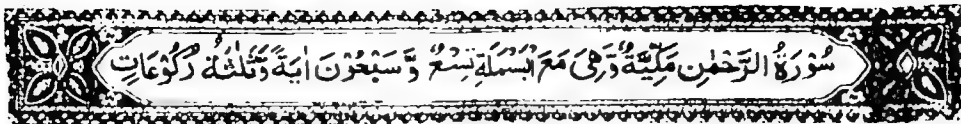 سُوْرَةُ الرَّحْمٰنِ مَكِّيَّةٌ وَّهِىَ مَعَ الْبَسْمَلَةِ تِسْعٌ وَّ سَبْعُوْنَ اٰيَةً وَّثَلٰثَةُ رُكُوْعَاتٍ